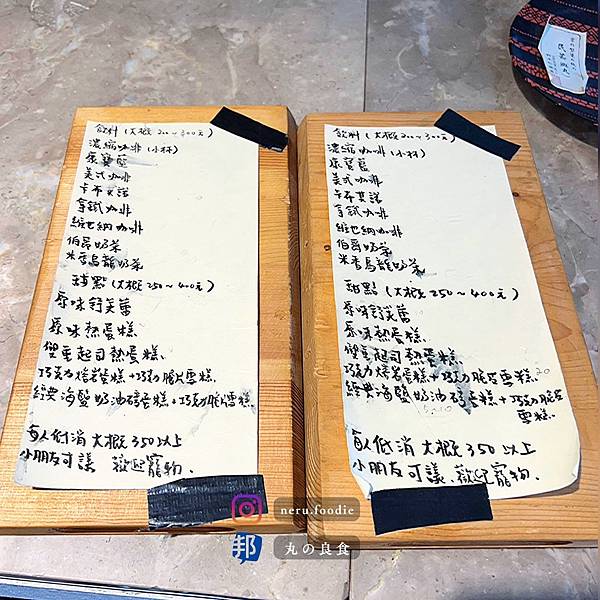 飲料(大概200~300元)
濃縮咖啡(小杯)
康寶藍
美式咖啡
卡布其諾
拿鉄咖啡
維也納咖啡
伯爵奶茶
米香烏龍奶茶
甜點(大概250~400元)
原味舒芙蕾
原味熱蛋糕.
雙重起司熱蛋糕.
巧克力熔岩蛋糕+巧克力脆片雪糕.
經典海鹽奶油磅蛋糕+巧克力脆片雪糕.
每人低消大概350以上
小朋友可議 歡迎寵物.
飲料(大概200~300元)
濃縮咖啡(小杯)
康寶藍
美式咖啡
卡布其諾
拿鉄咖啡
維也納咖啡
伯爵奶茶
米香烏龍奶茶
甜點(大概250~400元)
原味舒芙蕾
原味熱蛋糕
雙重起司熱蛋糕.
巧克力熔岩蛋糕+巧克力脆片雪糕.
經典海鹽奶油磅蛋糕+巧克力脆片
雪糕.
每人低消大概350以上
小朋友可議.歡迎寵物.
neru.foodie
邦 丸の良食